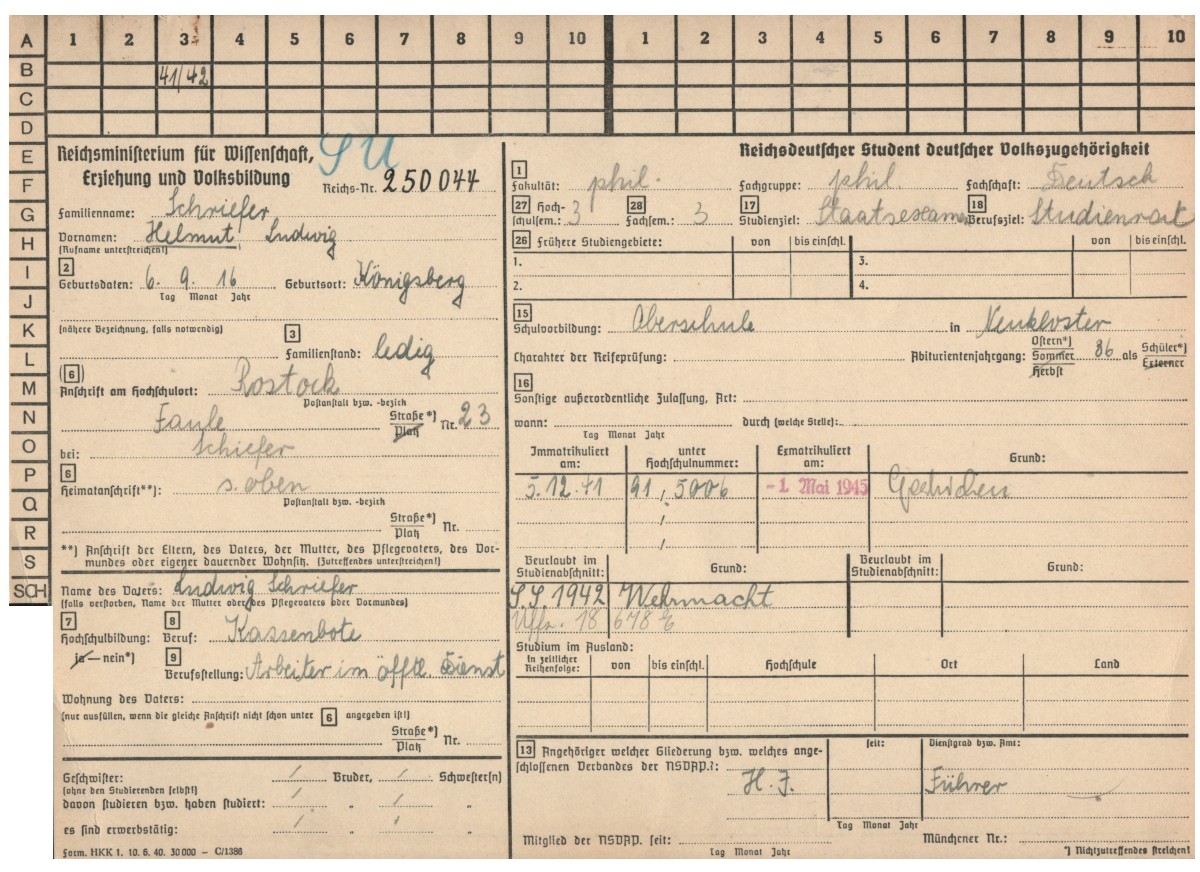 A 1 2 3 4 5 6 7 8 9 10 1 2 3 4 5 6 7 8 9 10
B 41/42
C
D
E
F
G
H
I
J
K
L
M
N
O
P
Q
R
S
SCH
SU
Reichsministerium für Wissenschaft,
Erziehung und Volksbildung Reichs-Nr. 250044
Familienname: Schriefer
Vornamen: Helmut Ludwig
(Rufname unterstreichen!)
2
Geburtsdaten: 6. 9. 16 Geburtsort: Königsberg
Tag Monat Jahr
(nähere Bezeichnung, falls notwendig)
3
Familienstand: ledig
(6)
Anschrift am Hochschulort: Rostock
Postanstalt bzw. -bezirk
Faule Straße*) Platz Nr. 23
bei: Schiefer
6
Heimatanschrift**): s. oben
Postanstalt bzw. -bezirk
Straße*) Platz Nr.
**) Anschrift der Eltern, des Vaters, der Mutter, des Pflegevaters, des Vor-
mundes oder eigener dauernder Wohnsitz. (Zutreffendes unterstreichen!)
Name des Vaters: Ludwig Schriefer
(falls verstorben, Name der Mutter oder des Pflegevaters oder Vormundes)
7 8
Hochschulbildung: Beruf: Kassenbote
ja — nein*) 9
Berufsstellung: Arbeiter im öfftl. Dienst
Wohnung des Vaters:
(nur ausfüllen, wenn die gleiche Anschrift nicht schon unter 6 angegeben ist!)
Straße*) Platz Nr.
Geschwister: / Bruder, / Schwester(n)
(ohne den Studierenden selbst!)
davon studieren bzw. haben studiert: / " / "
es sind erwerbstätig: / " / "
Form. HKK 1. 10. 6. 40. 30000 – C/1386
Reichsdeutscher Student deutscher Volkszugehörigkeit
1
Fakultät: phil. Fachgruppe: phil. Fachschaft: Deutsch
27 Hoch- 28 17 18
schulsem.: 3 Fachsem.: 3 Studienziel: Staatsexamen Berufsziel: Studienrat
26 Frühere Studiengebiete: von bis einschl. von bis einschl.
1. 3.
2. 4.
15
Schulvorbildung: Oberschule in Neukloster
Charakter der Reifeprüfung: Abiturientenjahrgang: Ostern*) Sommer Herbst 36 als Schüler*) Externer
16
Sonstige außerordentliche Zulassung, Art:
wann: durch (welche Stelle):
Tag Monat Jahr
Immatrikuliert am: unter Hochschulnummer: Exmatrikuliert am: Grund:
5.12.41 91, 5006 -1. Mai 1945 Gestrichen
/
/
Beurlaubt im Studienabschnitt: Grund: Beurlaubt im Studienabschnitt: Grund:
S.S. 1942 Wehrmacht
Uffz. 18 678 E
Studium im Ausland:
In zeitlicher Reihenfolge: von bis einschl. Hochschule Ort Land
13 Angehöriger welcher Gliederung bzw. welches ange- seit: Dienstgrad bzw. Amt:
schlossenen Verbandes der NSDAP.?: H.J. Führer
Tag Monat Jahr
Mitglied der NSDAP. seit: Münchener Nr.:
Tag Monat Jahr
*) Nichtzutreffendes streichen!